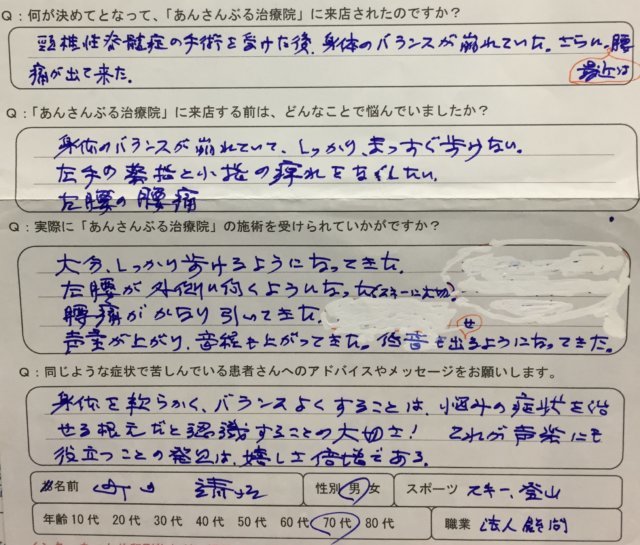 Q：何が決めてとなって、「あんさんぶる治療院」に来店されたのですか？
頸椎性脊髄症の手術を受けた後、身体のバランスが崩れていた。さらに、腰
痛が出て来た。
最近は
Q：「あんさんぶる治療院」に来店する前は、どんなことで悩んでいましたか？
身体のバランスが崩れていて、しっかり、まっすぐ歩けない。
左手の薬指と小指の痺れをなくしたい。
左腰の腰痛
Q：実際に「あんさんぶる治療院」の施術を受けられていかがですか？
大分、しっかり歩けるようになってきた。
左腰が外側に向くようになった(スキーに大切)。
腰痛がかなり引いてきた。
声量が上がり、音程も上がってきた。低音も出せるようになってきた。
Q：同じような症状で苦しんでいる患者さんへのアドバイスやメッセージをお願いします。
身体を軟らかく、バランスよくすることは、悩みの症状を治
せる根元だと認識することの大切さ！ これが声楽にも
役立つことの発見は、嬉しさ倍増である。
お名前 性別 男 女 スポーツ スキー、登山
年齢 10代 20代 30代 40代 50代 60代 70代 80代 職業 法人顧問